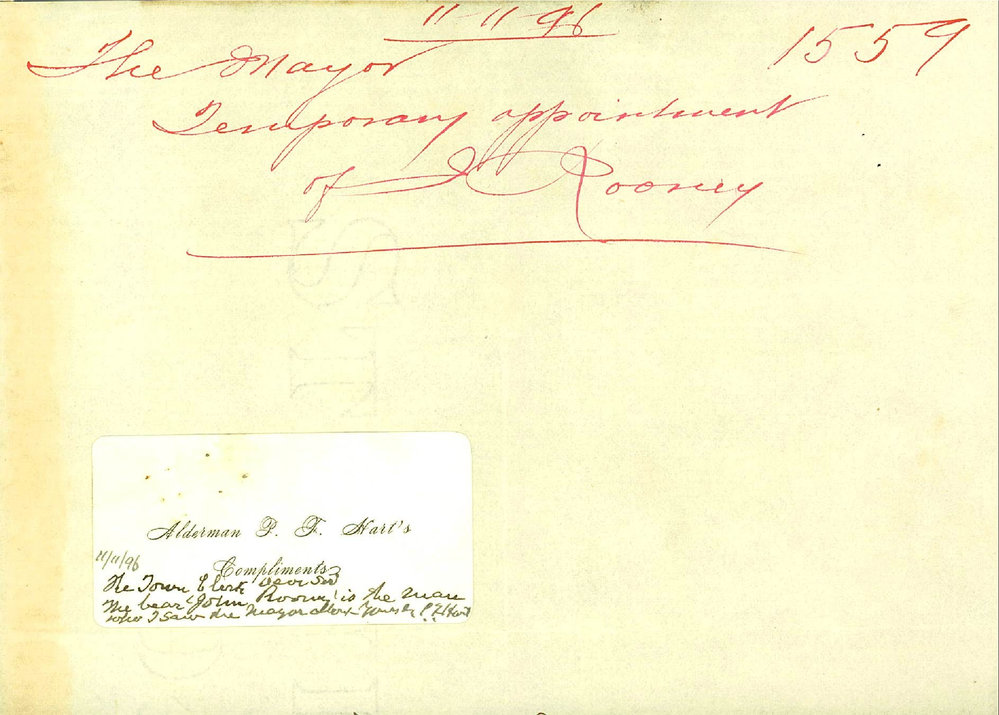 11-11-96
1559
The Mayor
Temporary appointment
of J Rooney
Alderman P. F. Hart's
Compliments
11/11/96
The Town Clerk Dear Sir
The bear John Rooney is the man
who I saw the Mayor about Yours P F Hart